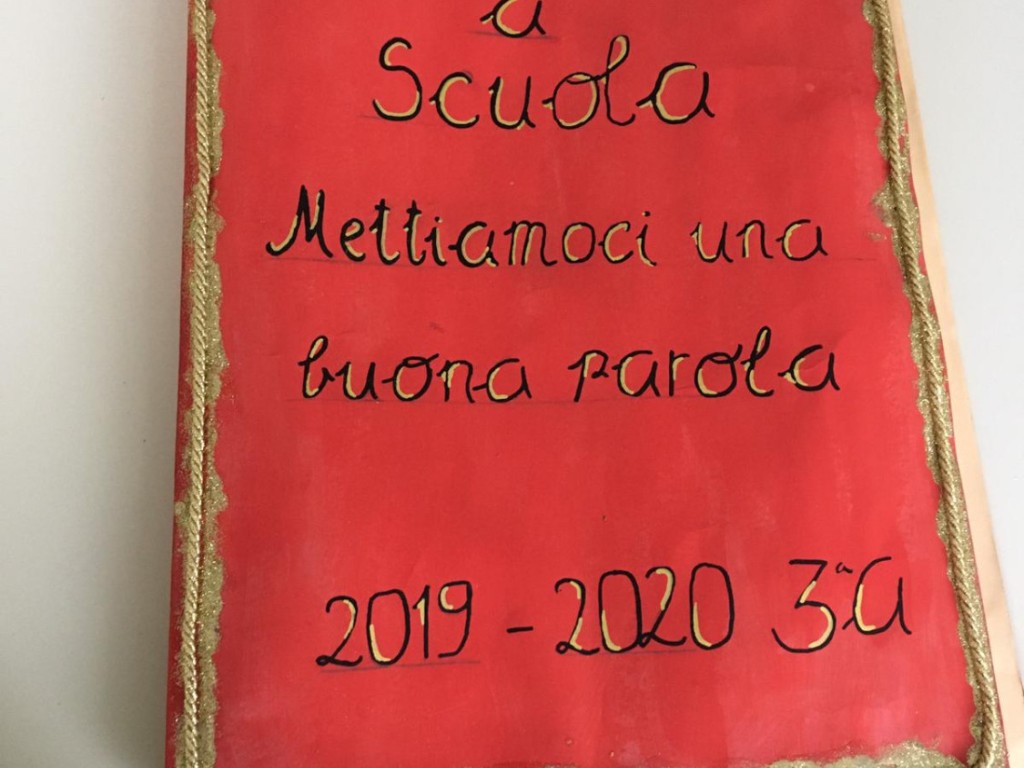 a
Scuola
Mettiamoci una
buona parola
2019 - 2020 3ªA